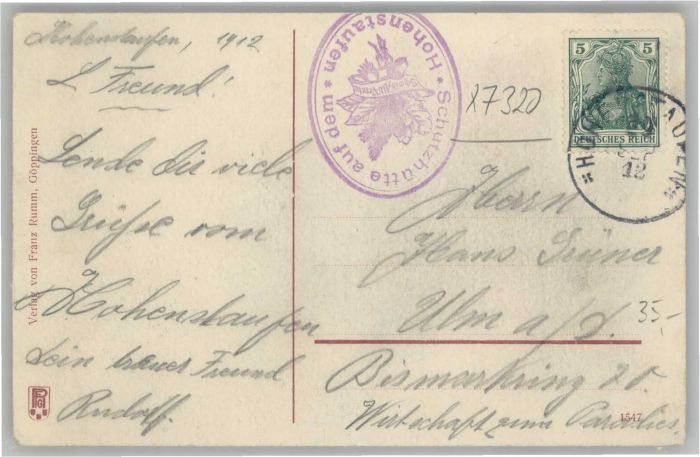 Hohenstaufen, 1912
L. Freund!
Sende dir viele
Grüße vom
Hohenstaufen
Dein treuer Freund
Rudolf.
Verlag von Franz Rumm, Göppingen
* Schutzhütte auf dem * Hohenstaufen
X7320
5 5
DEUTSCHES REICH
*HOHENSTAUFEN*
12
Herrn
Hans Grüner
Ulm a/d.
35,-
Bismarkring 20.
Wirtschaft zum Paradies.
1547